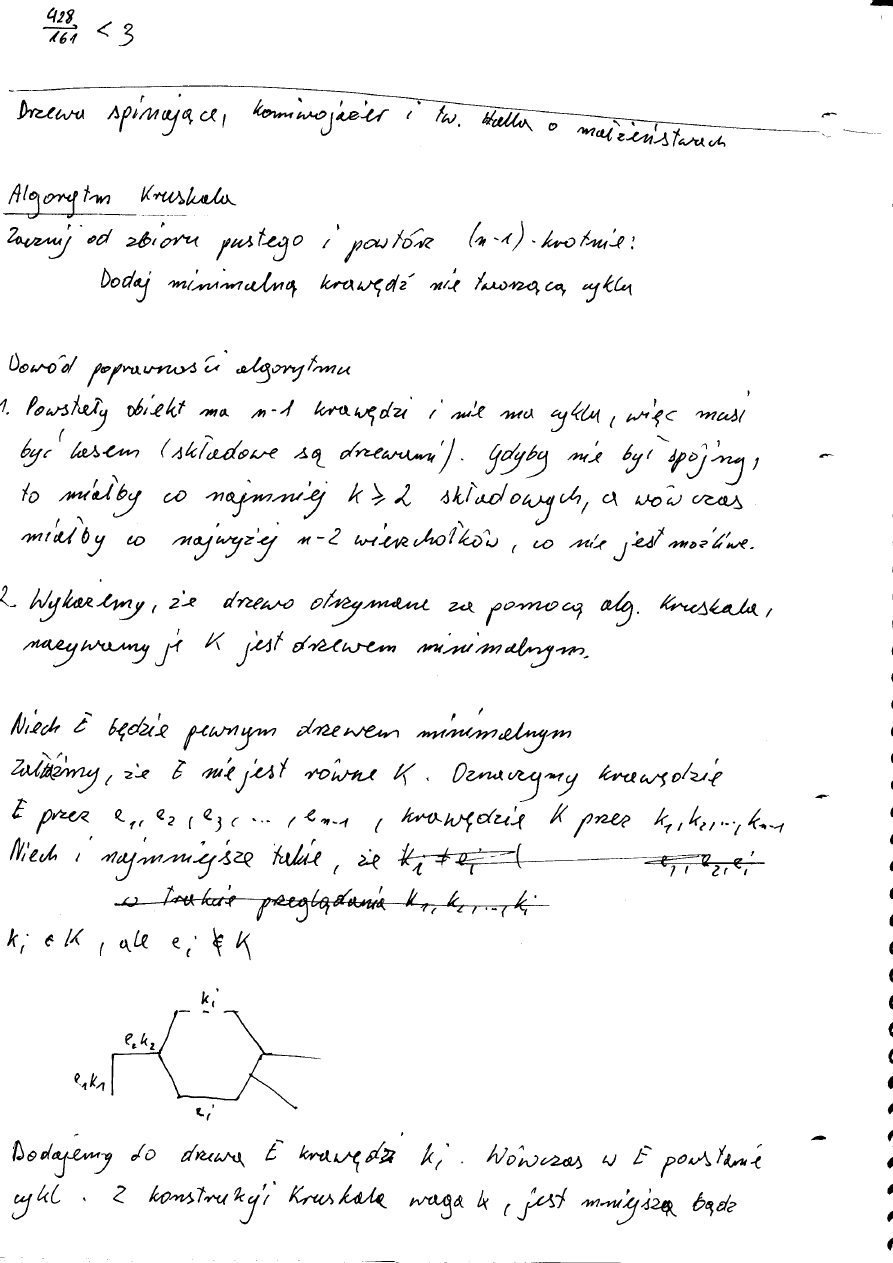 428/161 < 3
Drzewa spinające, komiwojażer i tw. Halla o małżeństwach
Algorytm Kruskala
Zacznij od zbioru pustego i powtórz (n-1)-krotnie:
Dodaj minimalną krawędź nie tworzącą cyklu
Dowód poprawności algorytmu
1. Powstały obiekt ma n-1 krawędzi i nie ma cyklu, więc musi
być lasem (składowe są drzewami). Gdyby nie był spójny,
to miałby co najmniej k ≥ 2 składowych, a wówczas
miałby co najwyżej n-2 wierzchołków, co nie jest możliwe.
2. Wykażemy, że drzewo otrzymane za pomocą alg. Kruskala,
nazywamy je K jest drzewem minimalnym.
Niech E będzie pewnym drzewem minimalnym
Załóżmy, że E nie jest równe K. Oznaczymy krawędzie
E przez e1, e2, e3, ..., en-1, krawędzie K przez k1, k2, ..., kn-1
Niech i najmniejsze takie, że ki ≠ ei ( e1, e2, ei
w trakcie przeglądania k1, k2, ..., ki
ki ∈ K, ale ei ∉ K
ki
e2k2
e1k1
ei
Dodajemy do drzewa E krawędź ki. Wówczas w E powstanie
cykl. Z konstrukcji Kruskala waga ki jest mniejsza bądź